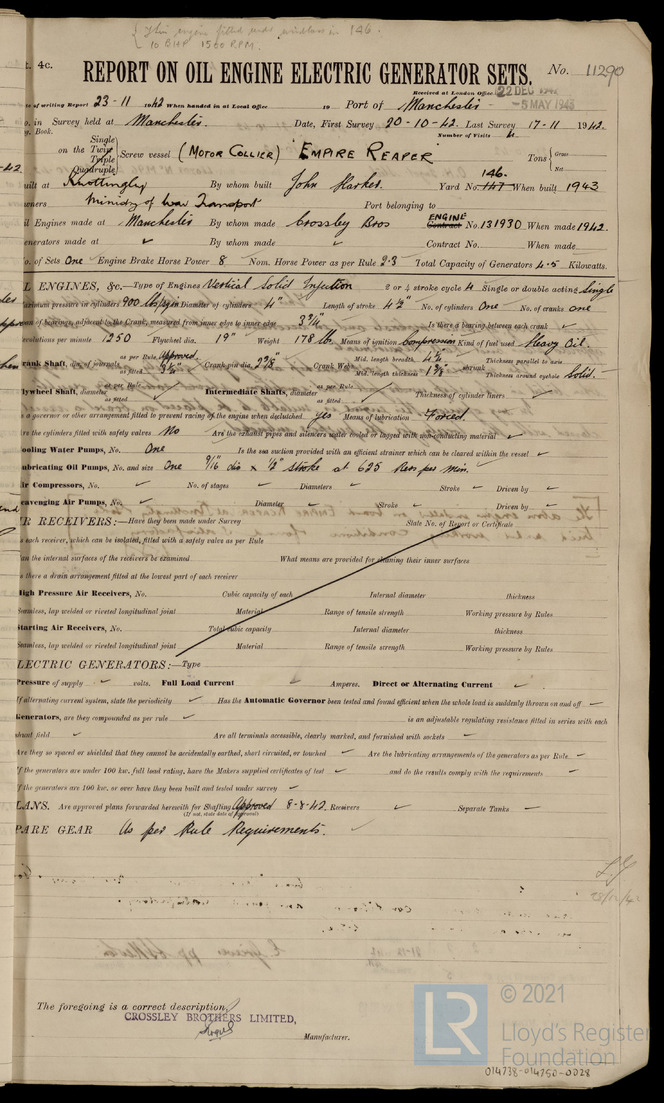 This engine fitted under windlass in 146.
10 BHP 1500 RPM.
t. 4c.
REPORT ON OIL ENGINE ELECTRIC GENERATOR SETS. No. 11290
Received at London Office 22 DEC 1942
-5 MAY 1943
te of writing Report 23-11 1942 When handed in at Local Office 19 Port of Manchester
o. in Survey held at Manchester. Date, First Survey 20-10-42. Last Survey 17-11 1942.
g. Book. Number of Visits 4
on the Single Twin Triple Quadruple Screw vessel (MOTOR COLLIER) "EMPIRE REAPER" Tons Gross Net
uilt at Knottingley By whom built John Harker. Yard No. 147 146. When built 1943
wners Ministry of War Transport Port belonging to
il Engines made at Manchester By whom made Crossley Bros Contract ENGINE No. 131930 When made 1942.
enerators made at ✓ By whom made ✓ Contract No. When made
o. of Sets One Engine Brake Horse Power 8 Nom. Horse Power as per Rule 2.3 Total Capacity of Generators 4.5 Kilowatts.
IL ENGINES, &c.—Type of Engines Vertical Solid Injection 2 or 4 stroke cycle 4 Single or double acting Single
aximum pressure in cylinders 900 lbs/sq.in Diameter of cylinders 4" Length of stroke 4½" No. of cylinders One No. of cranks one
an of bearings, adjacent to the Crank, measured from inner edge to inner edge Is there a bearing between each crank ✓
evolutions per minute 1250 Flywheel dia. 19" Weight 178 lb. Means of ignition Compression Kind of fuel used Heavy Oil.
rank Shaft, dia. of journals as per Rule Approved as fitted Crank pin dia. Crank Webs Mid. length breadth Mid. length thickness shrunk Thickness parallel to axis Thickness around eyehole Solid.
lywheel Shaft, diameter as per Rule as fitted Intermediate Shafts, diameter as per Rule as fitted Thickness of cylinder liners ✓
a governor or other arrangement fitted to prevent racing of the engine when declutched yes Means of lubrication Forced.
re the cylinders fitted with safety valves No Are the exhaust pipes and silencers water cooled or lagged with non-conducting material ✓
ooling Water Pumps, No. One Is the sea suction provided with an efficient strainer which can be cleared within the vessel ✓
ubricating Oil Pumps, No. and size One 9/16" dia x ½" stroke at 625 Revs per min.
ir Compressors, No. ✓ No. of stages ✓ Diameters ✓ Stroke ✓ Driven by ✓
cavenging Air Pumps, No. ✓ Diameter ✓ Stroke ✓ Driven by ✓
IR RECEIVERS:—Have they been made under Survey State No. of Report or Certificate
s each receiver, which can be isolated, fitted with a safety valve as per Rule
an the internal surfaces of the receivers be examined What means are provided for cleaning their inner surfaces
s there a drain arrangement fitted at the lowest part of each receiver
High Pressure Air Receivers, No. Cubic capacity of each Internal diameter thickness
Seamless, lap welded or riveted longitudinal joint Material Range of tensile strength Working pressure by Rules
Starting Air Receivers, No. Total cubic capacity Internal diameter thickness
Seamless, lap welded or riveted longitudinal joint Material Range of tensile strength Working pressure by Rules
LECTRIC GENERATORS:—Type
Pressure of supply ✓ volts. Full Load Current ✓ Amperes. Direct or Alternating Current ✓
If alternating current system, state the periodicity ✓ Has the Automatic Governor been tested and found efficient when the whole load is suddenly thrown on and off ✓
Generators, are they compounded as per rule ✓ is an adjustable regulating resistance fitted in series with each
shunt field ✓ Are all terminals accessible, clearly marked, and furnished with sockets ✓
Are they so spaced or shielded that they cannot be accidentally earthed, short circuited, or touched ✓ Are the lubricating arrangements of the generators as per Rule ✓
If the generators are under 100 kw. full load rating, have the Makers supplied certificates of test ✓ and do the results comply with the requirements ✓
If the generators are 100 kw. or over have they been built and tested under survey ✓
LANS. Are approved plans forwarded herewith for Shafting Approved 8-8-42. Receivers ✓ Separate Tanks ✓
(If not, state date of approval)
PARE GEAR As per Rule Requirements. ✓
The foregoing is a correct description,
CROSSLEY BROTHERS LIMITED,
Manufacturer.
LR
© 2021
Lloyd's Register
Foundation
014738-014750-0028